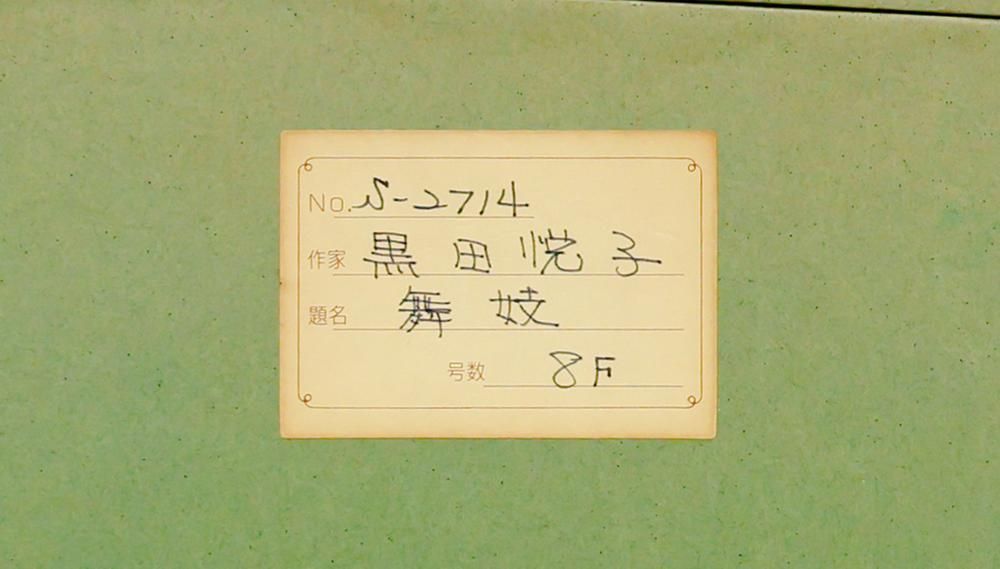 No. S-2714
作家 黒田悦子
題名 舞妓
号数 8F